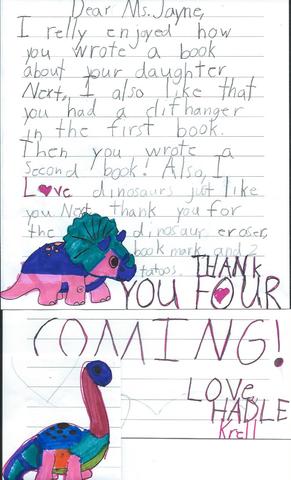 Dear Ms. Jayne,
I relly enjoyed how
you wrote a book
about your daughter
Next, I also like that
you had a clifhanger
in the first book.
Then you wrote a
Second book! Also, I
Love dinosaurs just like
you Next thank you for
the dinosaur eroser,
book mark, and 2
tatoos.
THANK
YOU FOUR
COMING!
LOVE,
HADLE
Krell